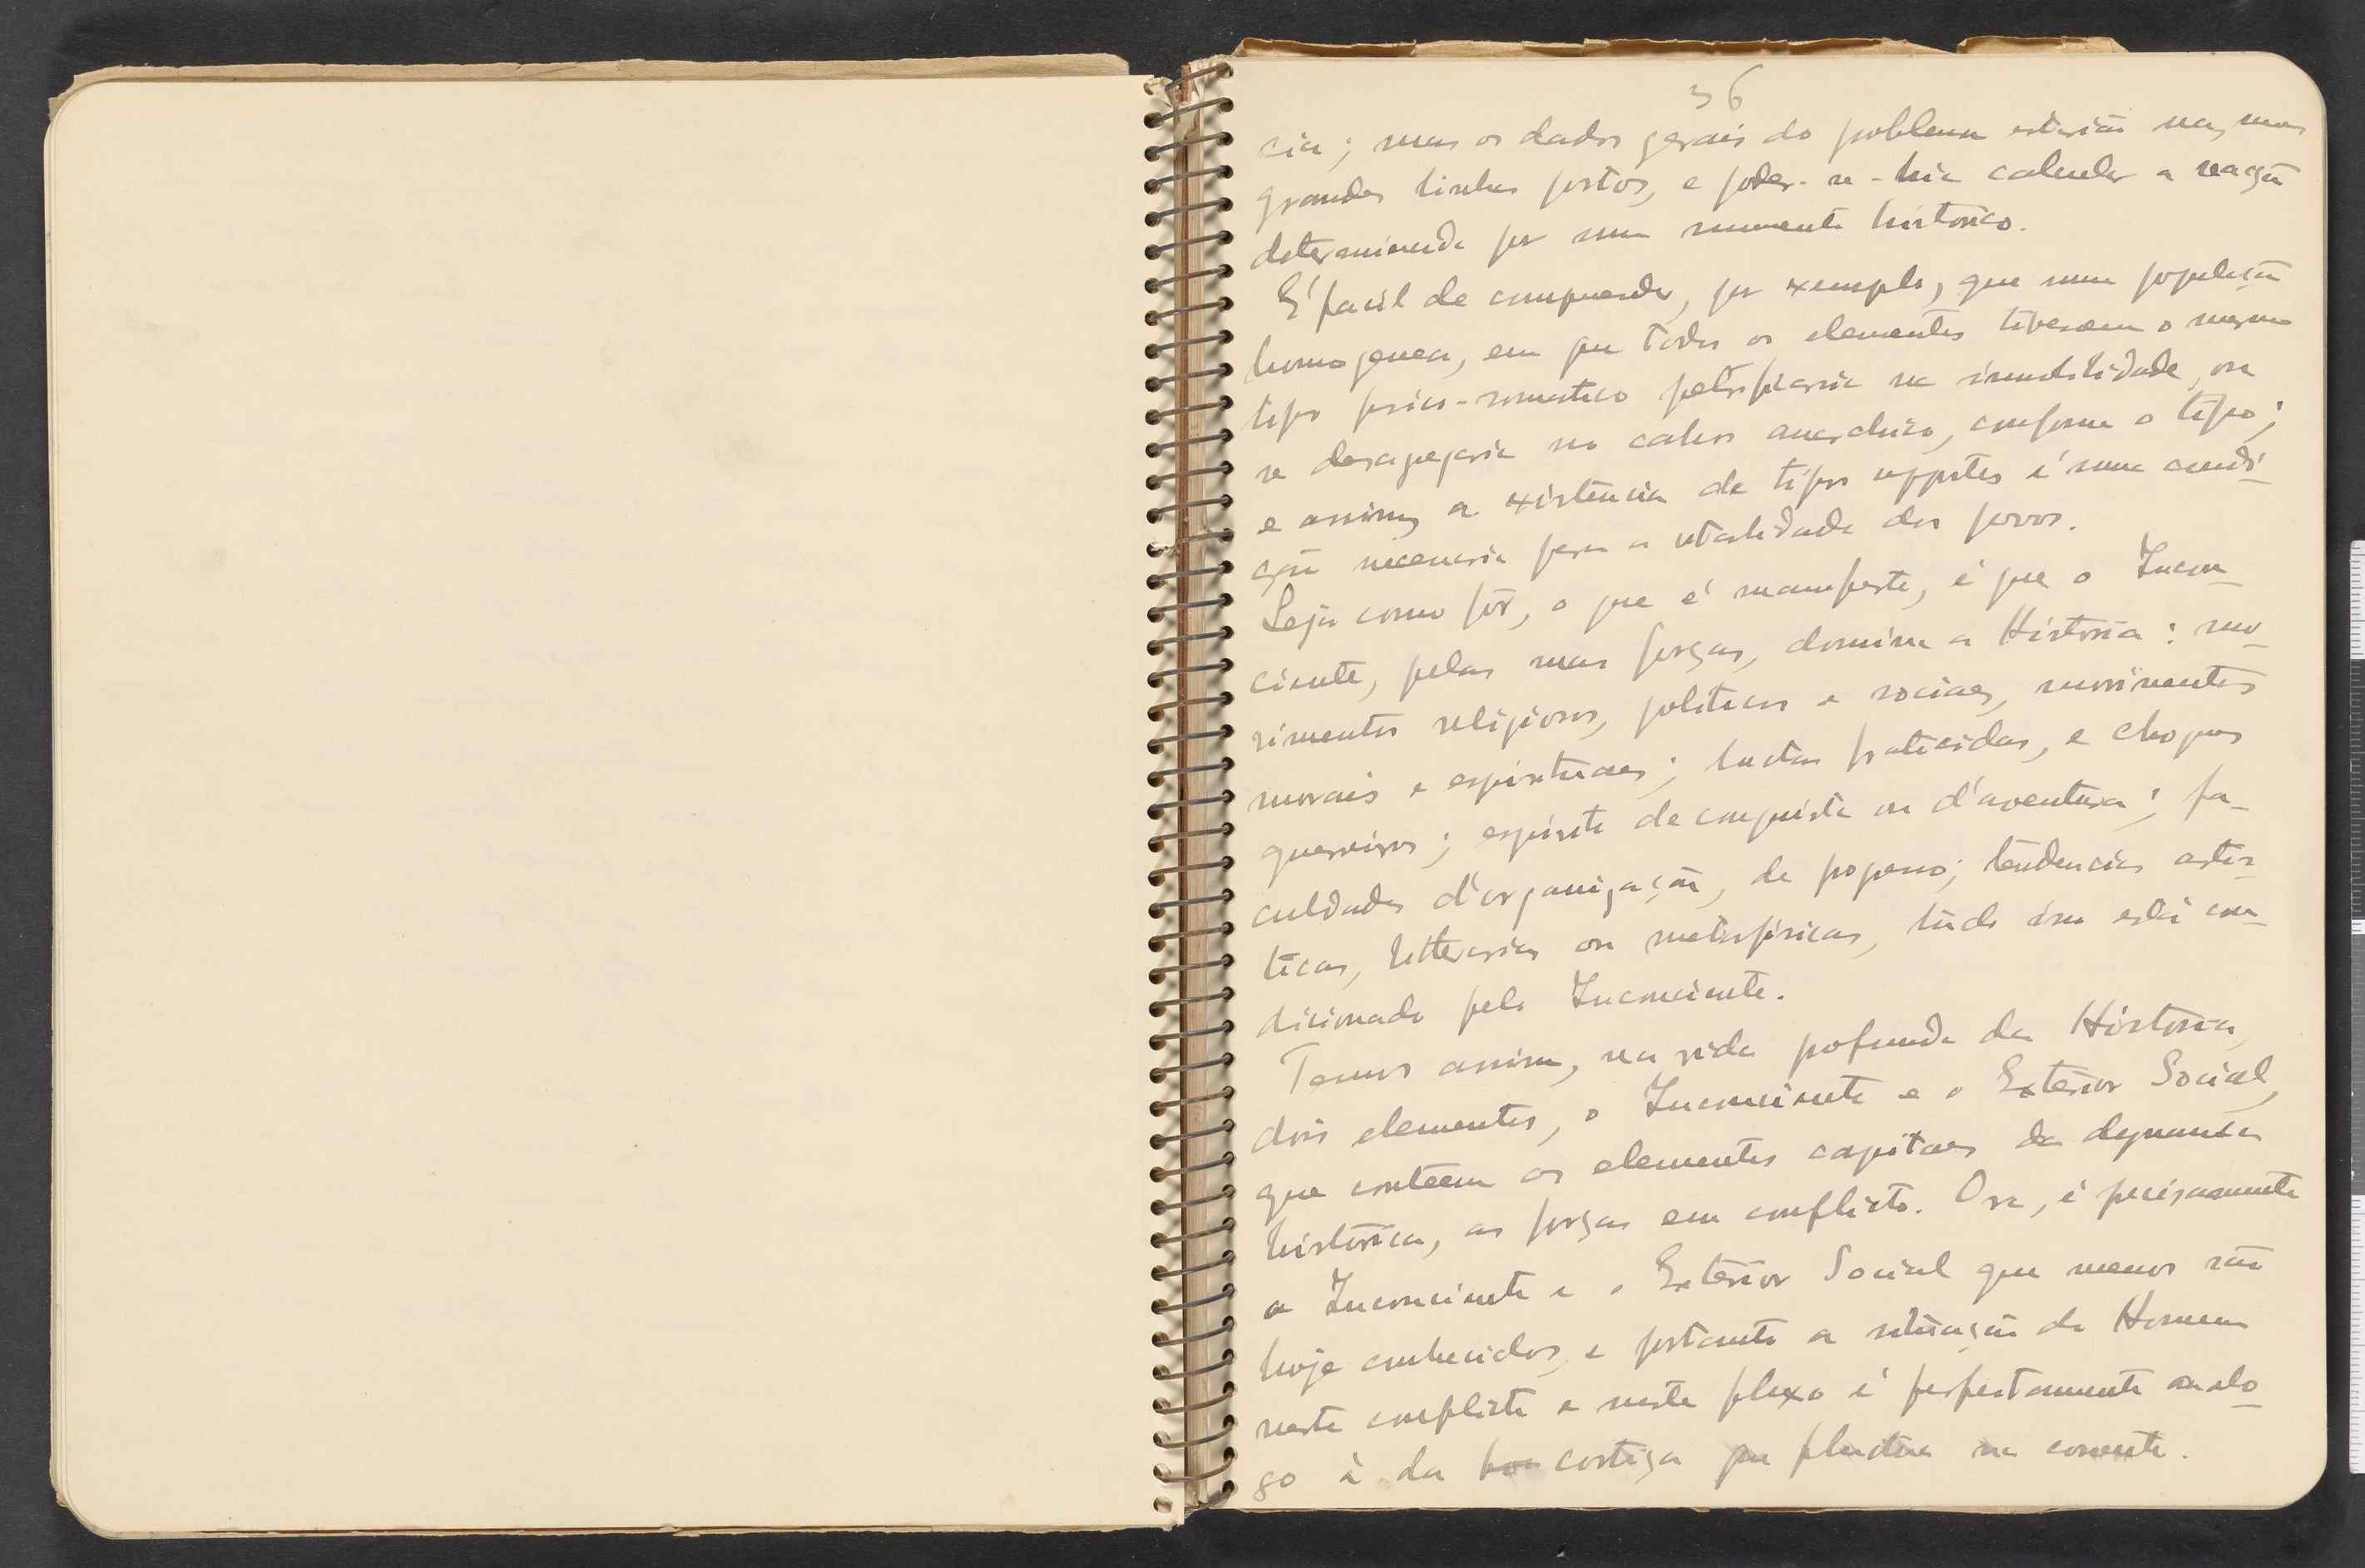 36
cia; mas os dados gerais do problema estarião nas suas
grandes linhas postos, e poder-se-hia calcular a reação
determinada por um momento historico.
E' facil de comprender, por exemplo, que uma população
homogenea, em que todos os elementos tivessem o mesmo
tipo psico-somatico petrificaria na imobilidade, ou
se desagregaria no cahos anarchico, conforme o tipo;
e assim, a existencia de tipos oppostos é uma condi-
ção necessaria para a vitalidade dos povos.
Seja como fôr, o que é manifesto, é que o Incon-
ciente, pelas suas forças, domina a Historia: mo-
vimentos religiosos, politicos e sociaes, movimentos
morais e espirituaes; luctas fraticidas, e choques
guerreiros; espirito de conquista ou d'aventura; fa-
culdades d'organização, de progresso; tendencias artis-
ticas, litterarias ou metafisicas, tudo isso está con-
dicionado pelo Inconciente.
Temos assim, na vida profunda da Historia,
dois elementos, o Inconciente e o Exterior Social,
que conteem os elementos capitaes da dynamica
historica, as forças em conflicto. Ora, é precisamente
o Inconciente e o Exterior Social que menos são
hoje conhecidos, e portanto a situação do Homem
neste conflicto e neste fluxo é perfeitamente analo-
go á da cortiça que fluctua na corrente.